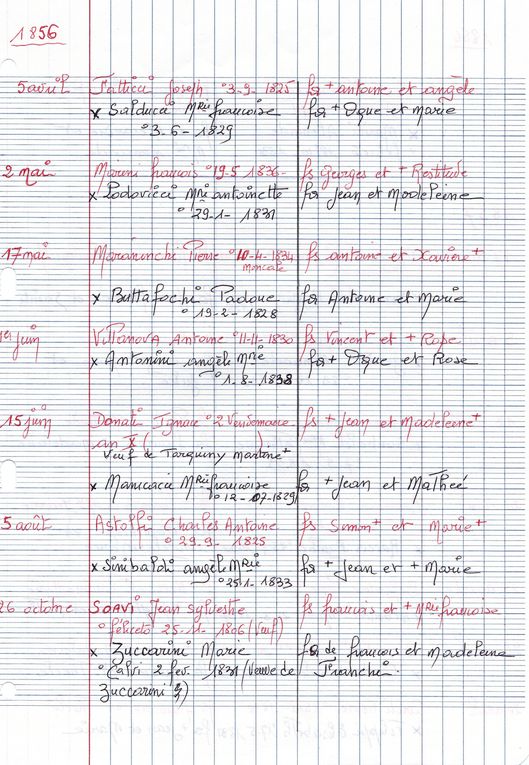 1856
5 avril Fattici Joseph ° 3-9-1825 fs + antoine et angèle
x Salduca Mrie françoise fa + Dque et Marie
° 3-6-1829
2 mai Marini françois ° 19-5 1836- fs Georges et + Restitude
x Lodovicci Mrie antoinette fa Jean et Madeleine
° 29-1-1831
17 mai Maraninchi Pierre ° 10-4-1834 fs antoine et Xavière +
moncale
x Buttafochi Padoue fa Antoine et Marie
° 19-2-1828
1er juin Villanova Antoine ° 11-11-1830 fs Vincent et + Rose
x Antonini angèle Mrie fa + Dque et Rose
° 1-8-1838
15 juin Donati Ignace ° 2 Vendemaire fs + Jean et Madeleine +
an X (
Veuf de Tarquiny martine +
x Manicacci Mrie françoise fa + Jean et Matheé
° 12-07-1829
5 août Astolfi Charles Antoine fs Simon + et Marie +
° 29-9-1825
x Sinibaldi angèle Mrie fa + Jean et + Marie
° 25-1-1833
26 octobre SOAVI Jean sylvestre fs françois et + Mrie françoise
° féliceto 25-11-1806 (Veuf)
x Zuccarini Marie fa de françois et Madeleine
° Calvi 2 fev. 1831 (Veuve de Franchi.
Zuccarini)